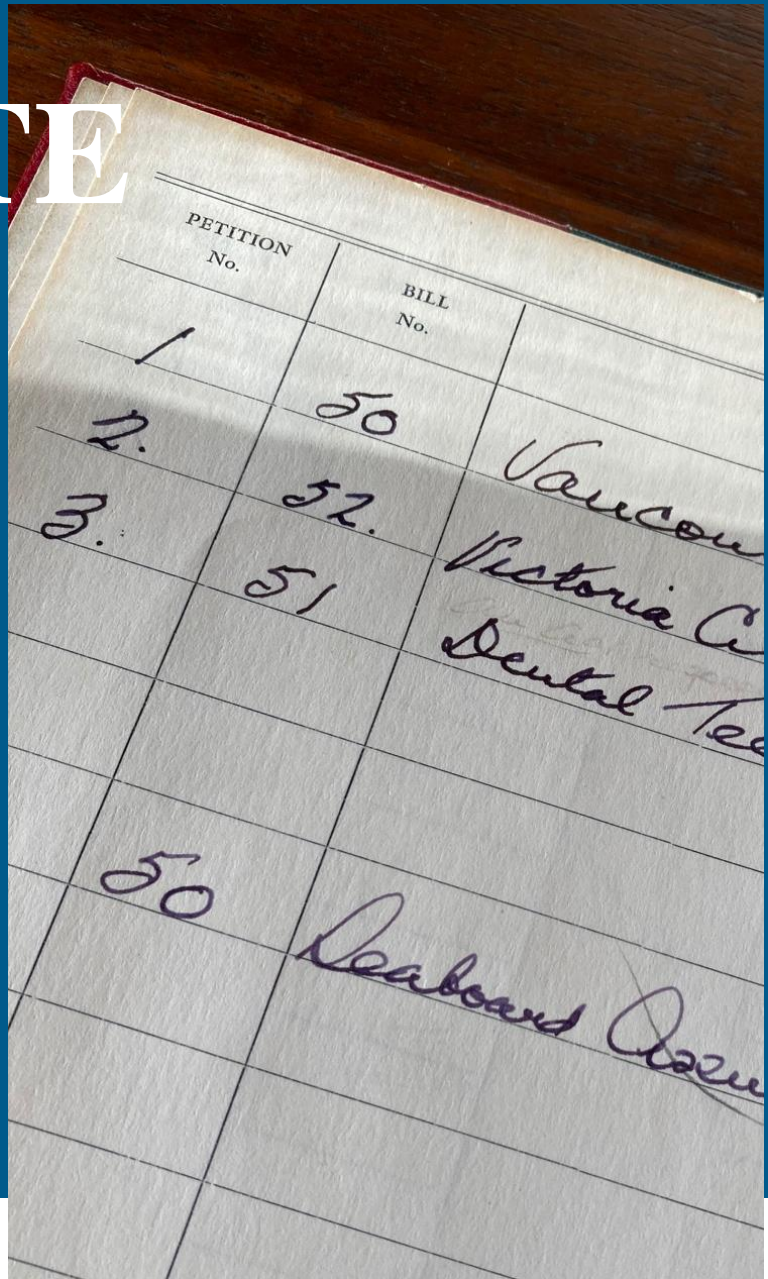 TE
PETITION No. BILL No.
1 50 Vancou
2. 52. Victoria C
3. 51 Dental Tec
50 Seaboard Assu